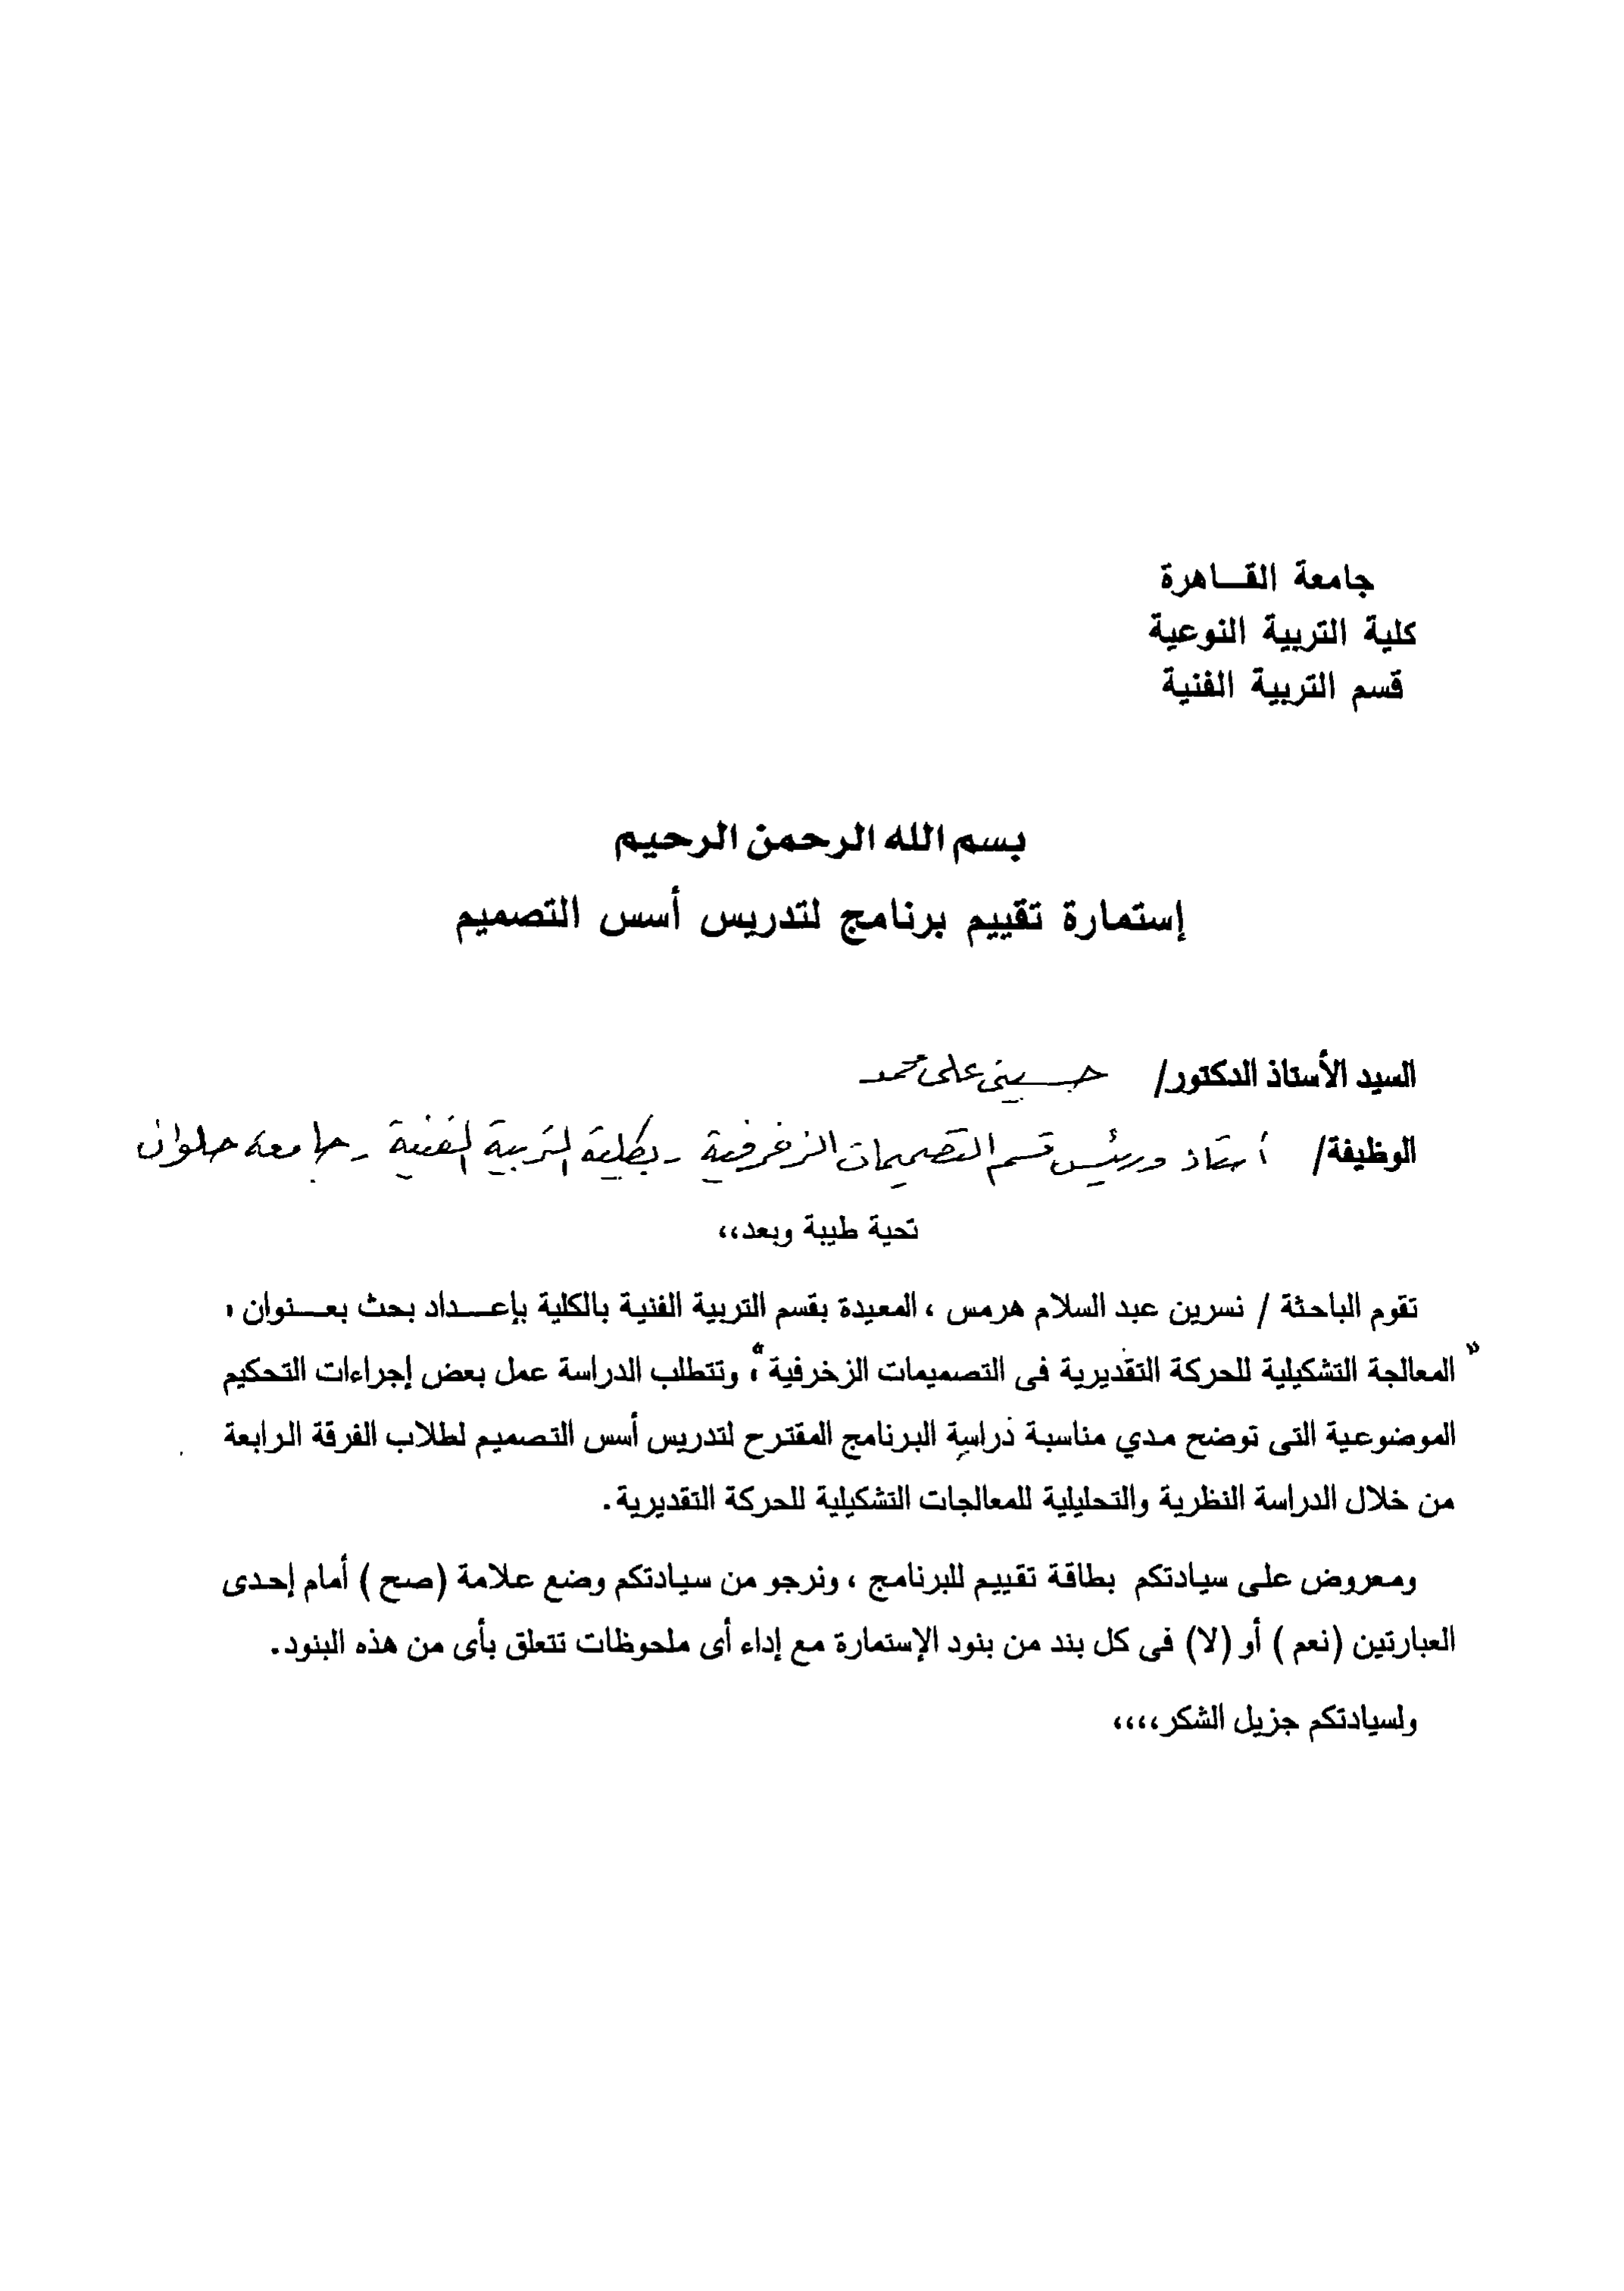 جامعة القـــاهرة
كلية التربية النوعية
قسم التربية الفنية
بسم الله الرحمن الرحيم
إستمارة تقييم برنامج لتدريس أسس التصميم
السيد الأستاذ الدكتور/ حسينى على محمد
الوظيفة/ أستاذ ورئيس قسم التصميمات الزخرفية - بكلية التربية الفنية - جامعة حلوان
تحية طيبة وبعد،،
تقوم الباحثة / نسرين عبد السلام هرمس ، المعيدة بقسم التربية الفنية بالكلية بإعـــداد بحث بعـــنوان ،
" المعالجة التشكيلية للحركة التقديرية فى التصميمات الزخرفية "، وتتطلب الدراسة عمل بعض إجراءات التحكيم
الموضوعية التى توضح مدي مناسبة دراسة البرنامج المقترح لتدريس أسس التصميم لطلاب الفرقة الرابعة
من خلال الدراسة النظرية والتحليلية للمعالجات التشكيلية للحركة التقديرية.
ومعروض على سيادتكم بطاقة تقييم للبرنامج ، ونرجو من سيادتكم وضع علامة (صح ) أمام إحدى
العبارتين (نعم ) أو (لا) فى كل بند من بنود الإستمارة مع إداء أى ملحوظات تتعلق بأى من هذه البنود.
ولسيادتكم جزيل الشكر،،،،